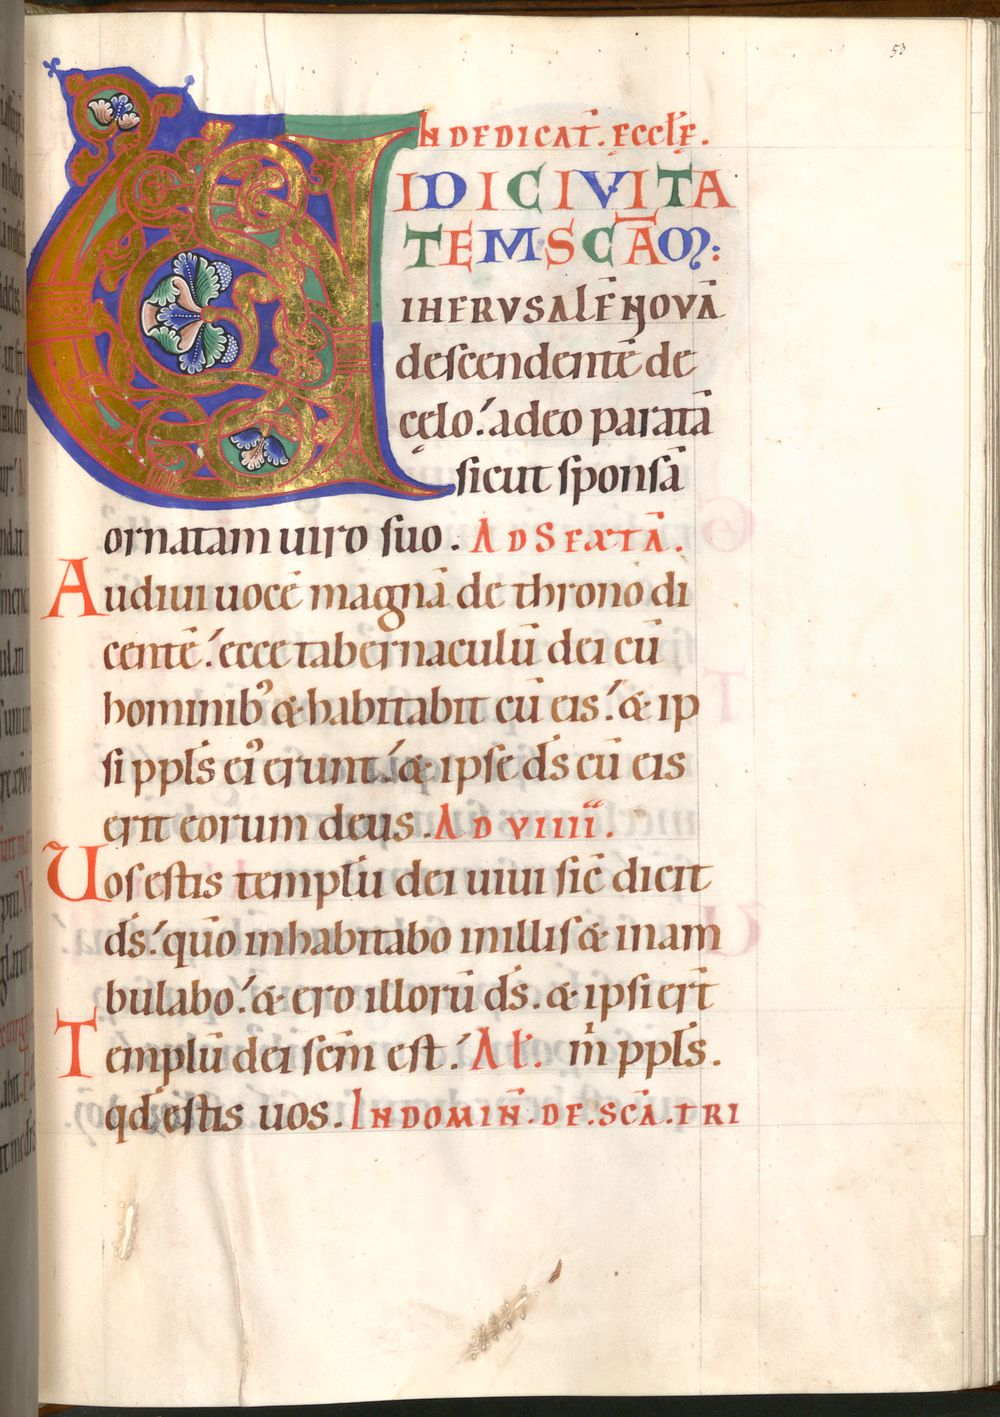 53
IN DEDICAT̄. ECCŁĘ.
VIDI CIVITA
TEM SC̄AM:
IHERVSALĒ NOVĀ
descendentē de
cęlo. a deo paratā
sicut sponsā
ornatam uiro suo. AD SEXTĀ.
Audiui uocē magnā de throno di
centē. ecce tabernaculū dei cū
hominibꝰ & habitabit cū eis. & ip
si ppłs eiꝰ erunt. & ipse d̄s cū eis
erit eorum deus. AD VIIII.
Uos estis templū dei uiui sic̄ dicit
d̄s. qūo inhabitabo in illis & inam
bulabo. & ero illorū d̄s. & ipsi er̄t
Templū dei sc̄m est. Ał. m̄ ppłs.
qd̄ estis uos. IN DOMIN̄. DE. SC̄A. TRI